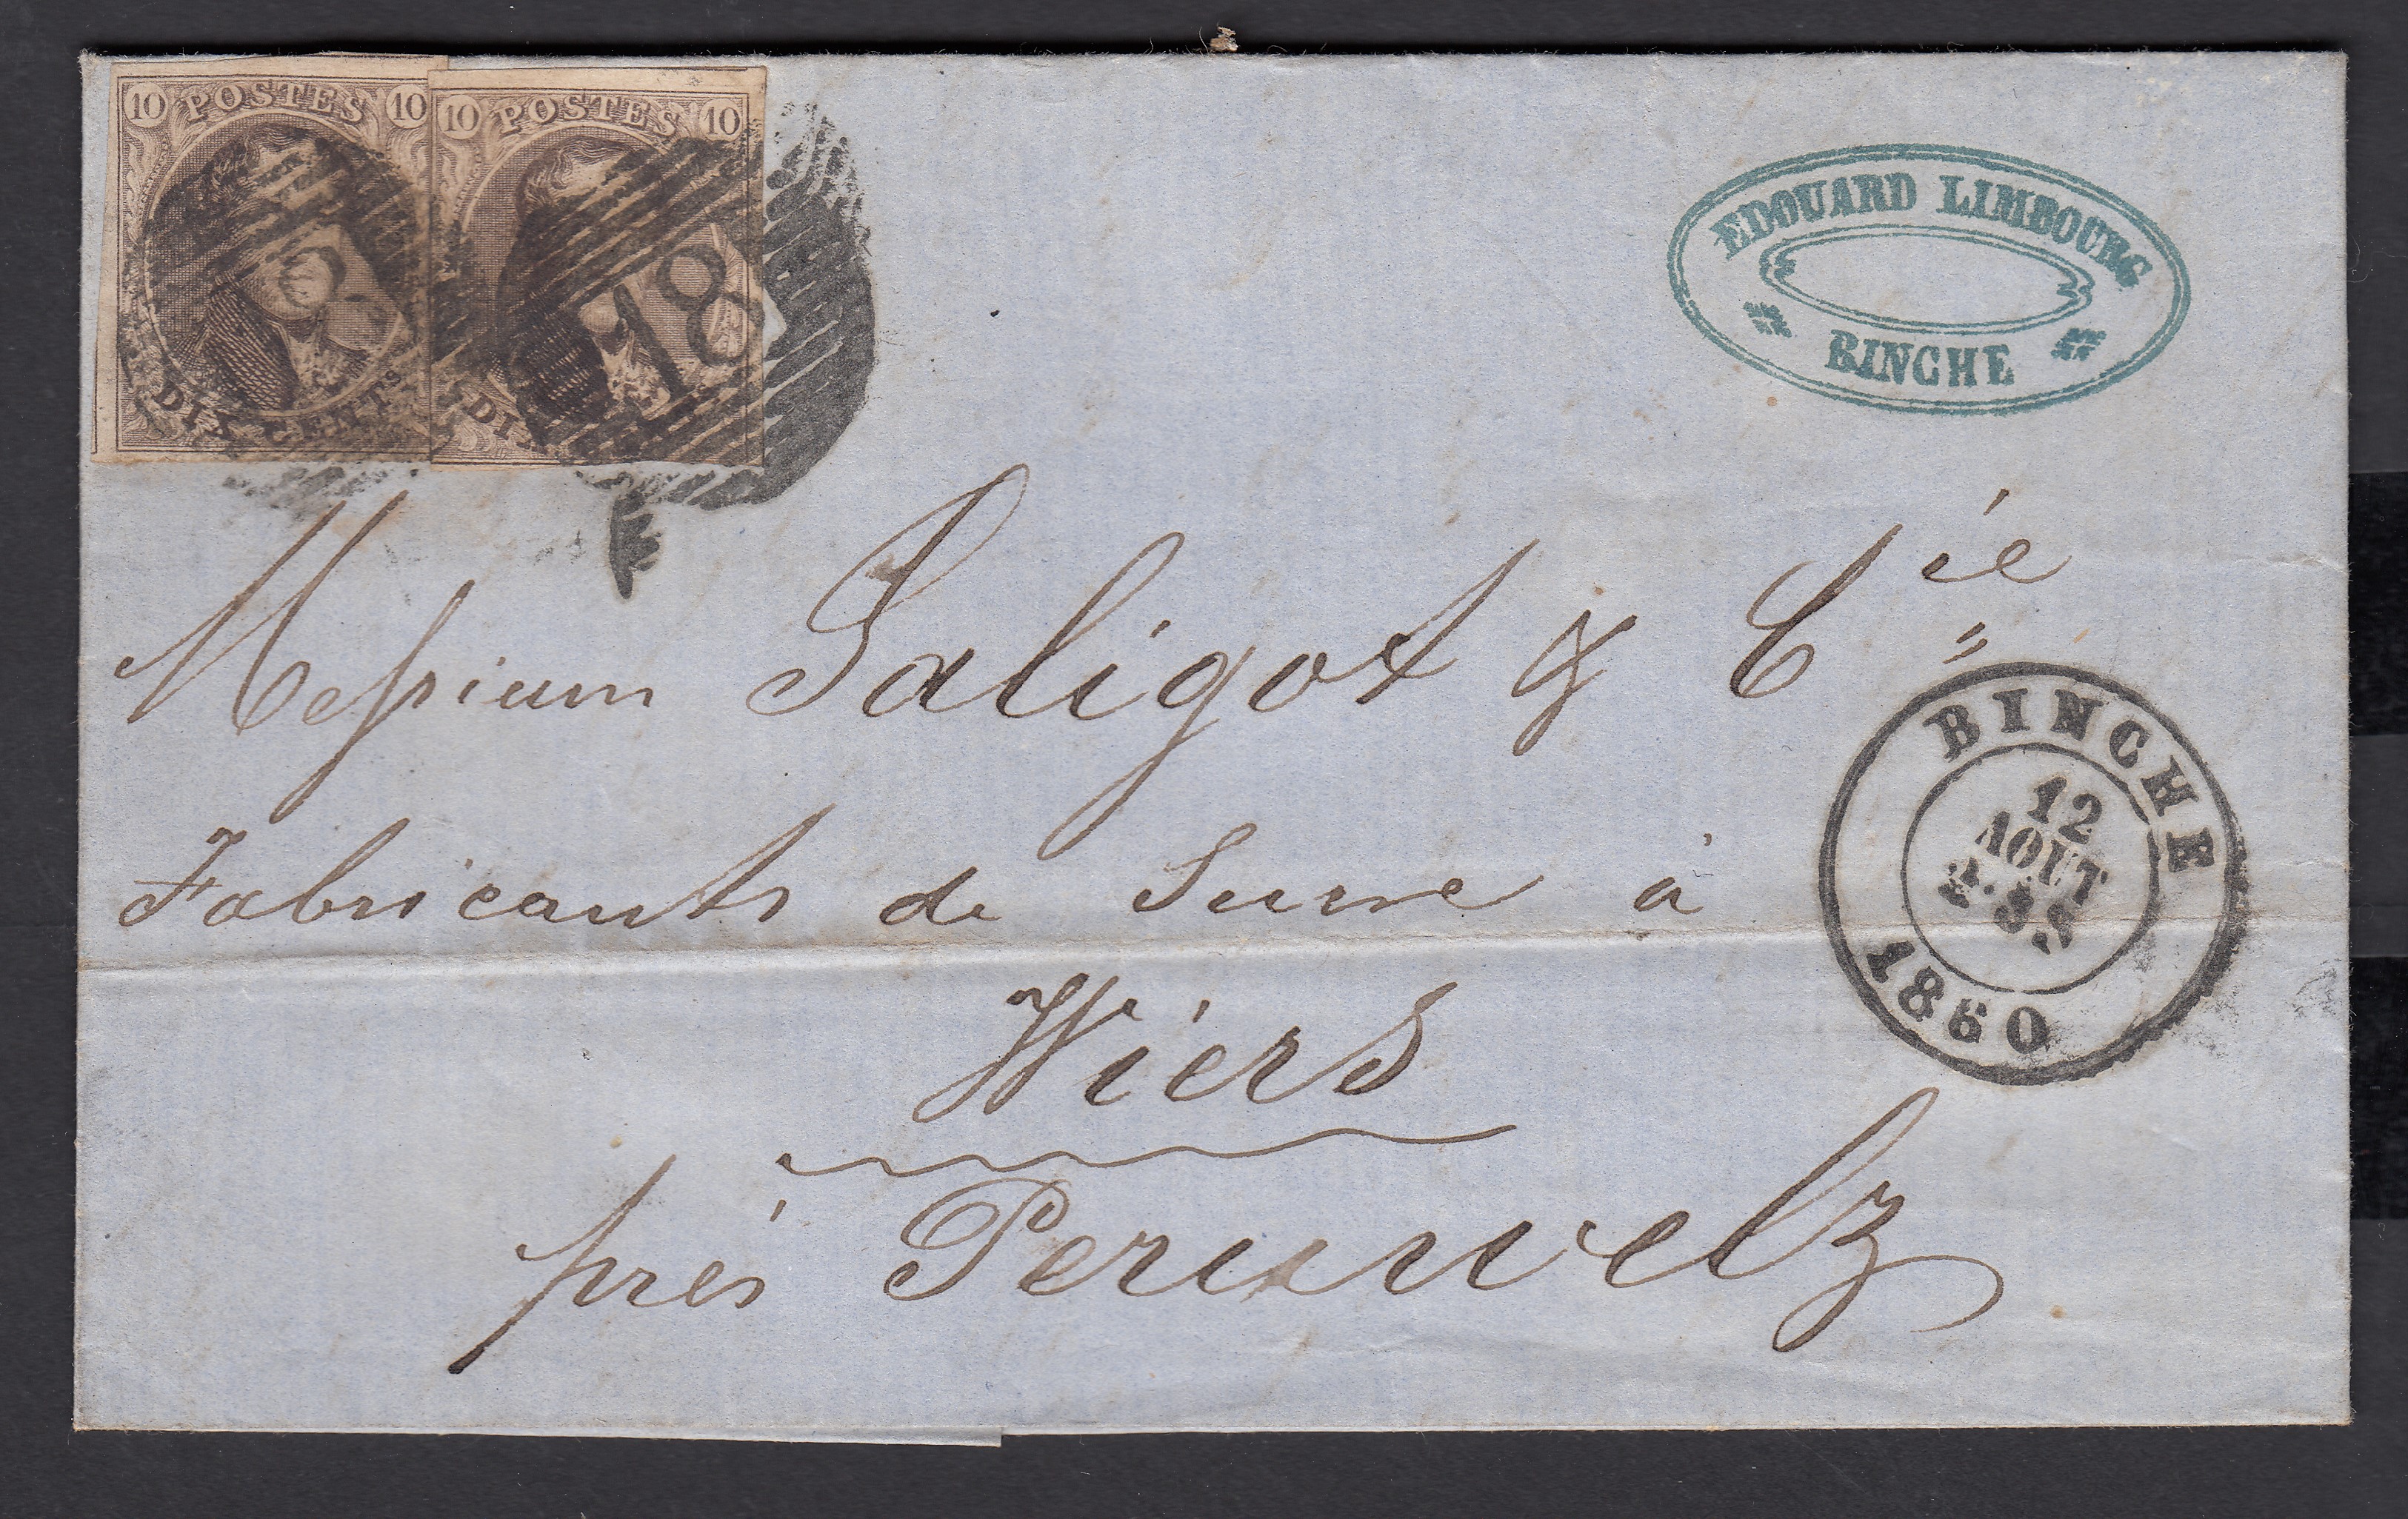 10 POSTES 10
DIX CENTS
10 POSTES 10
DIX
18
EDOUARD LIMBOURG
BINCHE
Messieurs Saligot & Cie
Fabricants de Sucre à
Wiers
près Peruwelz
BINCHE
12
AOUT
1860